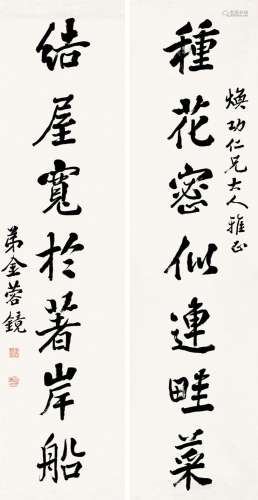 煥功仁兄大人雅正
種花密似連畦菜
結屋寬於著岸船
弟金蓉鏡